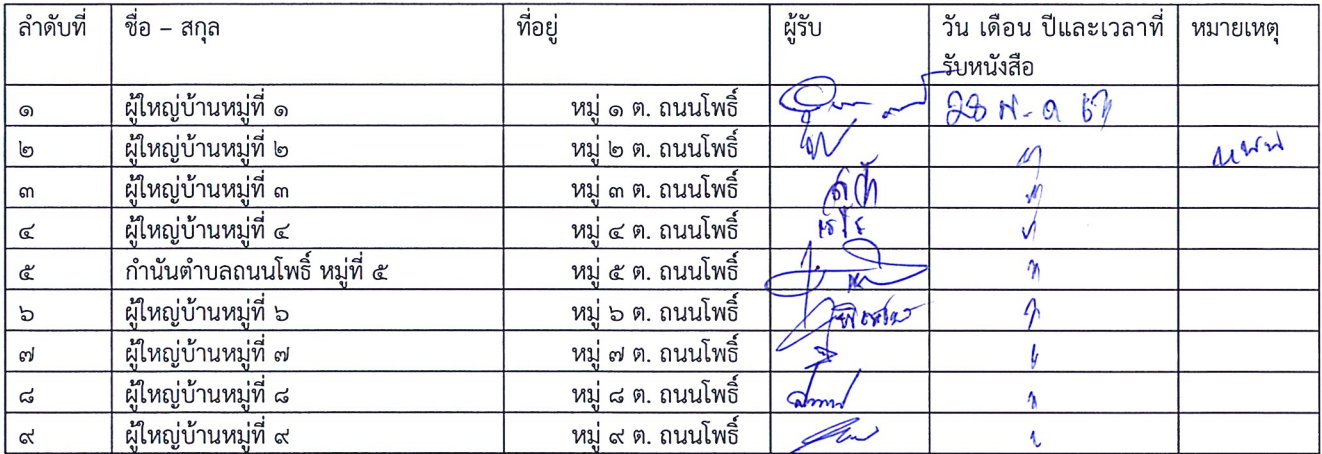 ลำดับที่ ชื่อ – สกุล ที่อยู่ ผู้รับ วัน เดือน ปีและเวลาที่ หมายเหตุ
รับหนังสือ
๑ ผู้ใหญ่บ้านหมู่ที่ ๑ หมู่ ๑ ต. ถนนโพธิ์ 28 พ.ค 67
๒ ผู้ใหญ่บ้านหมู่ที่ ๒ หมู่ ๒ ต. ถนนโพธิ์ ๆ
๓ ผู้ใหญ่บ้านหมู่ที่ ๓ หมู่ ๓ ต. ถนนโพธิ์ ๆ
๔ ผู้ใหญ่บ้านหมู่ที่ ๔ หมู่ ๔ ต. ถนนโพธิ์
๕ กำนันตำบลถนนโพธิ์ หมู่ที่ ๕ หมู่ ๕ ต. ถนนโพธิ์
๖ ผู้ใหญ่บ้านหมู่ที่ ๖ หมู่ ๖ ต. ถนนโพธิ์
๗ ผู้ใหญ่บ้านหมู่ที่ ๗ หมู่ ๗ ต. ถนนโพธิ์
๘ ผู้ใหญ่บ้านหมู่ที่ ๘ หมู่ ๘ ต. ถนนโพธิ์
๙ ผู้ใหญ่บ้านหมู่ที่ ๙ หมู่ ๙ ต. ถนนโพธิ์